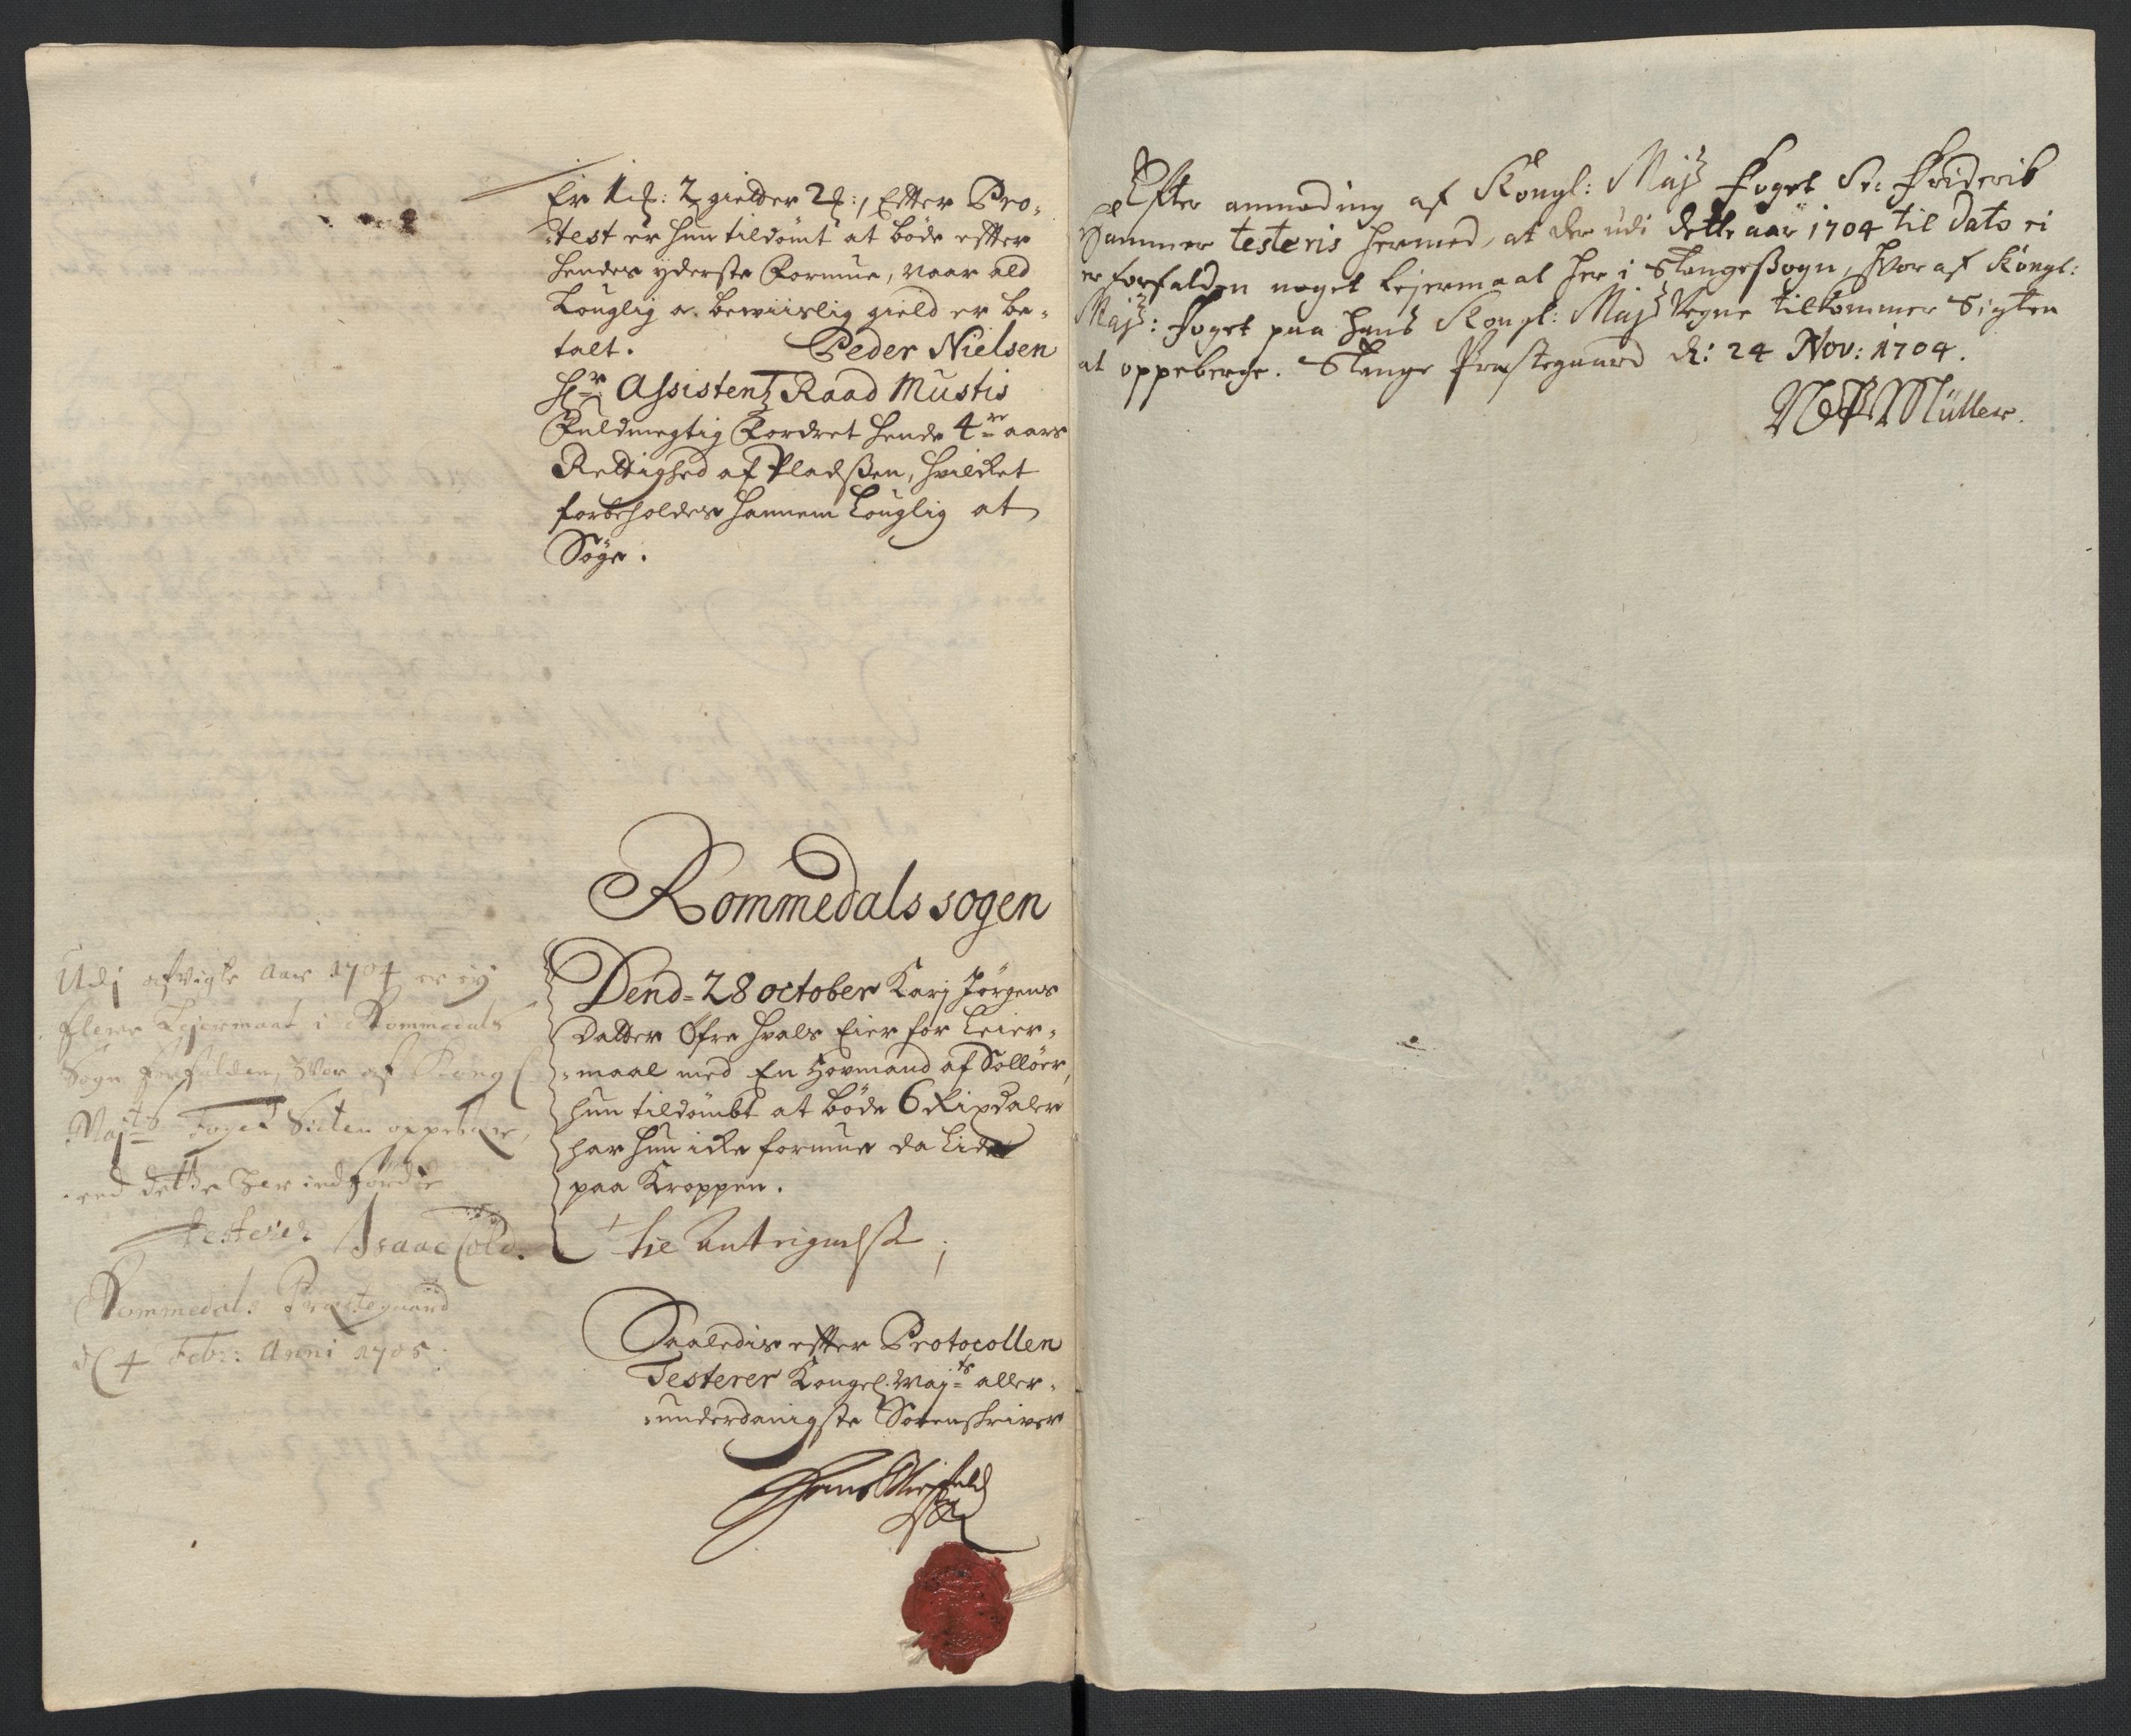 Er 1 rd: 2 gielder 2 rd:, Efter Pro-
test er hun tildömt at böde efter
hendes yderste Formue, naar ald
Louglig oc beviislig gield er be-
talt. Peder Nielsen
Hr Assistentz Raad Mustis
Fuldmegtig Fordret hende 4re aars
Rettighed af Pladßen, hvilcket
forbeholdes hannem Louglig at
Söge.
Rommedals sogen
Dend 28 october Karj Jörgens
datter Öfre hvals Eier for Leier-
maal med En Hovmand af Sollöer,
hun tildömbt at böde 6 Rixdaler
har hun icke formue da Lide
paa Kroppen.
til Untrignelse;
Saaledis efter Protocollen
Testerer Kongel. Majts aller-
underdanigste Sorenskriver
Udj afvigte Aar 1704 er ey
flere Lejermaal i Rommedals
Sogn forfalden, hvor af Kongl
Majts Foget Sicten oppebære,
end dette her indförde
testerer Isaac Cold.
Rommedals Præstegaard
d 4 Febr: Anni 1705.
Efter anmoding af Kongl: Majs Foget Sr Friderik
Hammer testeris hermed, at der udi dette aar 1704 til dato ei
er forfalden noget Lejermaal her i Stange Sogn, hvor af Kongl:
Majs: Foget paa hans Kongl: Majs Vegne tilkommer Sigten
at oppeberge. Stange Præstegaard d: 24 Nov: 1704.
Müller.